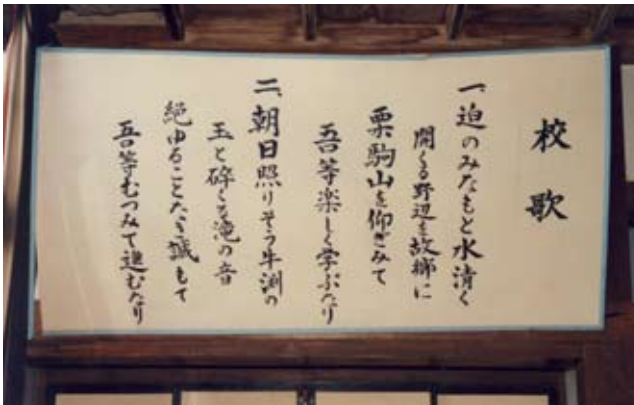 校歌
一、迫のみなもと水清く
開くる野辺を故郷に
栗駒山を仰ぎみて
吾等楽しく学ぶなり
二、朝日照りそう牛渕の
玉と砕くる滝の音
絶ゆることなき誠もて
吾等むつみて進むなり